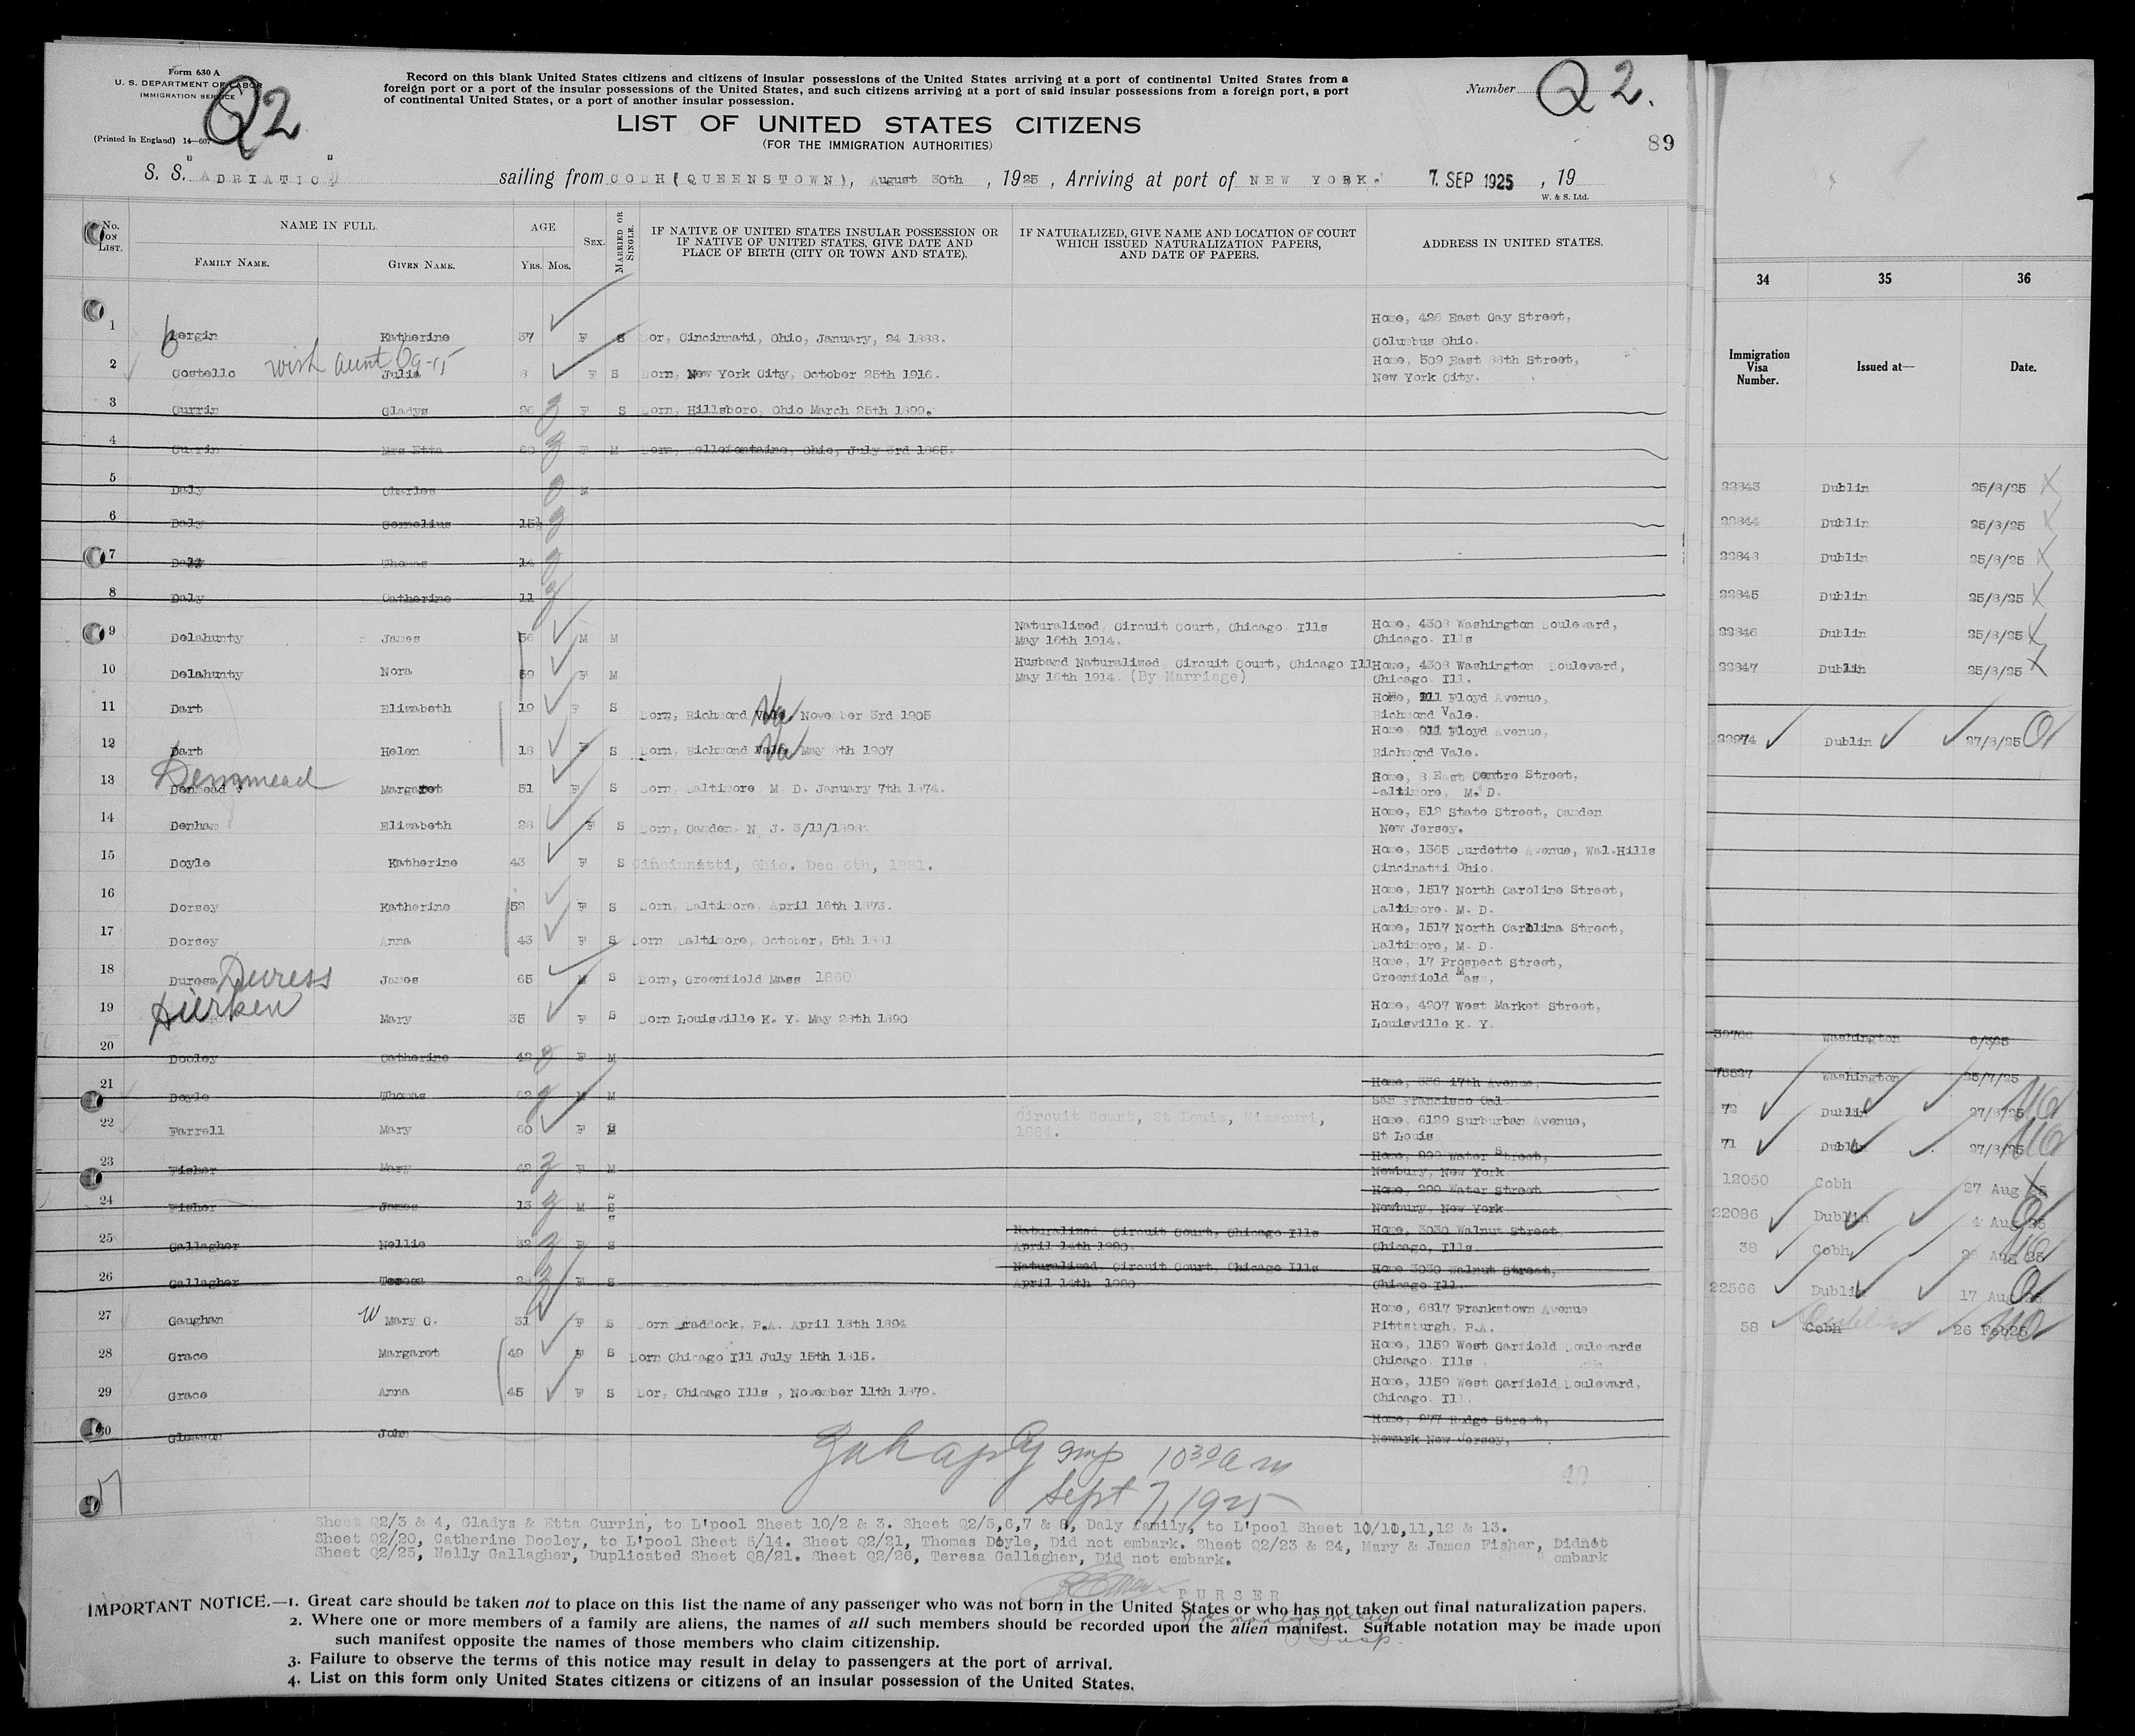 Form 630 A
U. S. DEPARTMENT OF LABOR
IMMIGRATION SERVICE
(Printed in England) 14—607
Q2
Record on this blank United States citizens and citizens of insular possessions of the United States arriving at a port of continental United States from a
foreign port or a port of the insular possessions of the United States, and such citizens arriving at a port of said insular possessions from a foreign port, a port
of continental United States, or a port of another insular possession.
Number Q2.
LIST OF UNITED STATES CITIZENS
(FOR THE IMMIGRATION AUTHORITIES)
89
S. S. "ADRIATIC" sailing from COBH (QUEENSTOWN), August 30th, 1925, Arriving at port of NEW YORK. 7. SEP 1925, 19
W. & S. Ltd.
No. ON LIST. NAME IN FULL. FAMILY NAME. GIVEN NAME. AGE Yrs. Mos. SEX. MARRIED OR SINGLE. IF NATIVE OF UNITED STATES INSULAR POSSESSION OR IF NATIVE OF UNITED STATES, GIVE DATE AND PLACE OF BIRTH (CITY OR TOWN AND STATE). IF NATURALIZED, GIVE NAME AND LOCATION OF COURT WHICH ISSUED NATURALIZATION PAPERS, AND DATE OF PAPERS. ADDRESS IN UNITED STATES.
1 Bergin Katherine 37 F S Bor, Cincinnati, Ohio, January, 24 1888. Home, 426 East Gay Street, Columbus Ohio.
2 Costello with aunt Julia 8 F S Born, New York City, October 25th 1916. Home, 509 East 88th Street, New York City.
3 Currin Gladys 26 F S Born, Hillsboro, Ohio March 25th 1899.
4 Currin Mrs Etta 60 F M Born, Bellefontaine, Ohio, July 3rd 1865.
5 Daly Charles M
6 Daly Cornelius 15½
7 Daly Thomas 14
8 Daly Catherine 11
9 Delahunty James 56 M M Naturalized, Circuit Court, Chicago Ills May 16th 1914. Home, 4308 Washington Boulevard, Chicago. Ills
10 Delahunty Nora 59 F M Husband Naturalized, Circuit Court, Chicago Ill May 16th 1914. (By Marriage) Home, 4308 Washington Boulevard, Chicago. Ill.
11 Dart Elizabeth 19 F S Born, Richmond Vale, Va November 3rd 1905 Home, 211 Floyd Avenue, Richmond Vale.
12 Dart Helen 18 F S Born, Richmond Vale, Va May 8th 1907 Home, 211 Floyd Avenue, Richmond Vale.
13 Denmead Denmead Margaret 51 F S Born, Baltimore, M. D. January 7th 1874. Home, 8 East Centre Street, Baltimore, M. D.
14 Denham Elizabeth 28 F S Born, Camden. N. J. Home, 512 State Street, Camden New Jersey.
15 Doyle Katherine 43 F S Cincinnatti, Ohio. Dec 6th, 1881. Home, 1365 Burdette Avenue, Wal.Hills Cincinatti Ohio.
16 Dorsey Katherine 52 F S Born, Baltimore, April 16th 1873. Home, 1517 North Caroline Street, Baltimore. M. D.
17 Dorsey Anna 43 F S Born Baltimore, October, 5th 1881 Home, 1517 North Carolina Street, Baltimore, M. D.
18 Duress Duress James 65 M S Born, Greenfield Mass 1860 Home, 17 Prospect Street, Greenfield Mass,
19 Dierken Mary 35 F S Born Louisville K. Y. May 28th 1890 Home, 4207 West Market Street, Louisville K. Y.
20 Dooley Catherine 42 F M
21 Doyle Thomas 62 M M Home, 336 17th Avenue, San Francisco Cal.
22 Farrell Mary 60 F Circuit Court, St Louis, Missouri, 1884. Home, 6129 Surburban Avenue, St Louis
23 Fisher Mary 42 F M Home, 299 Water Street, Newbury, New York
24 Fisher James 13 M S Home, 299 Water Street Newbury, New York
25 Gallagher Nellie 32 F S Naturalized, Circuit Court, Chicago Ills April 14th 1920. Home, 3030 Walnut Street Chicago, Ills.
26 Gallagher Teresa 28 F S Naturalized, Circuit Court, Chicago Ills April 14th 1920 Home 3030 Walnut Street, Chicago Ill.
27 Gaughan W Mary C. 31 F S Born Braddock, P.A. April 18th 1894 Home, 6817 Frankstown Avenue Pittsburgh, P.A.
28 Grace Margaret 49 F S Born Chicago Ill July 15th 1815. Home, 1159 West Garfield Boulevards Chicago. Ills.
29 Grace Anna 45 F S Bor, Chicago Ills, November 11th 1879. Home, 1159 West Garfield Boulevard, Chicago. Ill.
30 Gleason John Home, 277 Badge Street, Newark New Jersey,
10 30 a m
Sept 7, 1925
Sheet Q2/3 & 4, Gladys & Etta Currin, to L'pool Sheet 10/2 & 3. Sheet Q2/5,6,7 & 8, Daly family, to L'pool Sheet 10/10,11,12 & 13.
Sheet Q2/20, Catherine Dooley, to L'pool Sheet 5/14. Sheet Q2/21, Thomas Doyle, Did not embark. Sheet Q2/23 & 24, Mary & James Fisher, Didnot embark
Sheet Q2/25, Nelly Gallagher, Duplicated Sheet Q8/21. Sheet Q2/26, Teresa Gallagher, Did not embark.
PURSER
IMPORTANT NOTICE.—1. Great care should be taken not to place on this list the name of any passenger who was not born in the United States or who has not taken out final naturalization papers.
2. Where one or more members of a family are aliens, the names of all such members should be recorded upon the alien manifest. Suitable notation may be made upon
such manifest opposite the names of those members who claim citizenship.
3. Failure to observe the terms of this notice may result in delay to passengers at the port of arrival.
4. List on this form only United States citizens or citizens of an insular possession of the United States.
34 35 36
Immigration Visa Number. Issued at— Date.
22843 Dublin 25/8/25
22844 Dublin 25/8/25
22848 Dublin 25/8/25
22845 Dublin 25/8/25
22846 Dublin 25/8/25
22847 Dublin 25/8/25
22974 Dublin 27/8/25
Washington
Washington 25/7/25
72 Dublin 27/8/25
71 Dublin 27/8/25
12050 Cobh 27 Aug 25
22086 Dublin 4 Aug 25
38 Cobh Aug 25
22566 Dublin 17 Aug 25
58 Cobh Dublin 26 Feb25